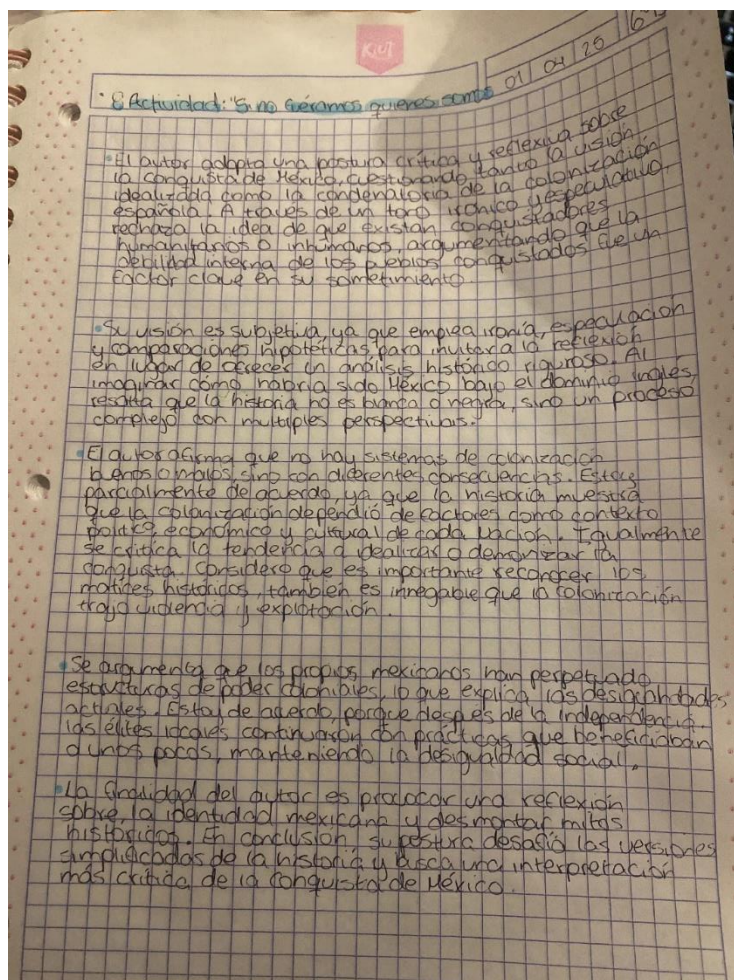 KIUT
01 04 25
· & Actividad: "Si no fuéramos quienes somos
• El autor adopta una postura crítica y reflexiva sobre
la conquista de México, cuestionando tanto la visión
idealizada como la condenatoria de la colonización
española. A traves de un tono irónico y especulativo
rechaza la idea de que existan conquistadores
humanitarios o inhumanos, argumentando que la
debilidad interna de los pueblos conquistados fue un
factor clave en su sometimiento.
• Su visión es subjetiva, ya que emplea ironía, especulación
y comparaciones hipotéticas, para invitar a la reflexión
en lugar de ofrecer un análisis histórico riguroso. Al
imaginar cómo habría sido México bajo el dominio inglés,
resalta que la historia no es blanca o negra, sino un proceso
complejo con multiples perspectivas.
• El autor afirma que no hay sistemas de colonización
buenos o malos, sino con diferentes consecuencias. Estoy
parcialmente de acuerdo, ya que la historia muestra
que la colonización dependió de factores como contexto
político, económico y cultural de cada nación. Igualmente
se critica la tendencia a idealizar o demonizar la
conquista. Considero que es importante reconocer los
matices históricos, también es innegable que la colonización
trajo violencia y explotación.
• Se argumenta que los propios mexicanos han perpetuado
estructuras de poder coloniales, lo que explica las desigualdades
actuales. Estoy de acuerdo, porque después de la independencia.
las élites locales continuaron con prácticas que beneficiaban
a unos pocos, manteniendo la desigualdad social.
• La finalidad del autor es provocar una reflexión
sobre, la identidad mexicana y desmontar mitos
históricos. En conclusión, su postura desafía las versiones
simplificadas de la historia y busca una interpretación
más crítica de la conquista de México.